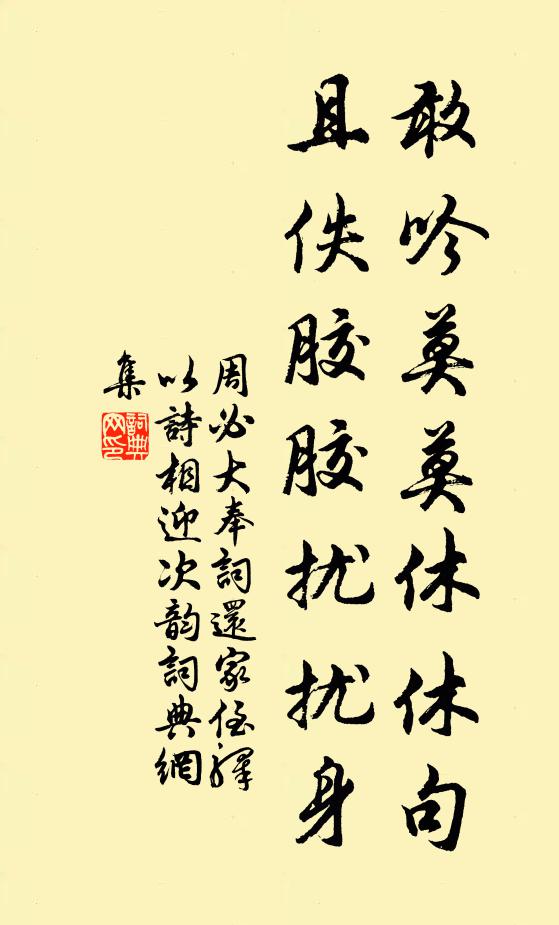 敢吟莫莫休休句
且佚胶胶扰扰身
周必大奉詞還家侄驛
以詩相迎次韵詞典網
集
詞典
网印